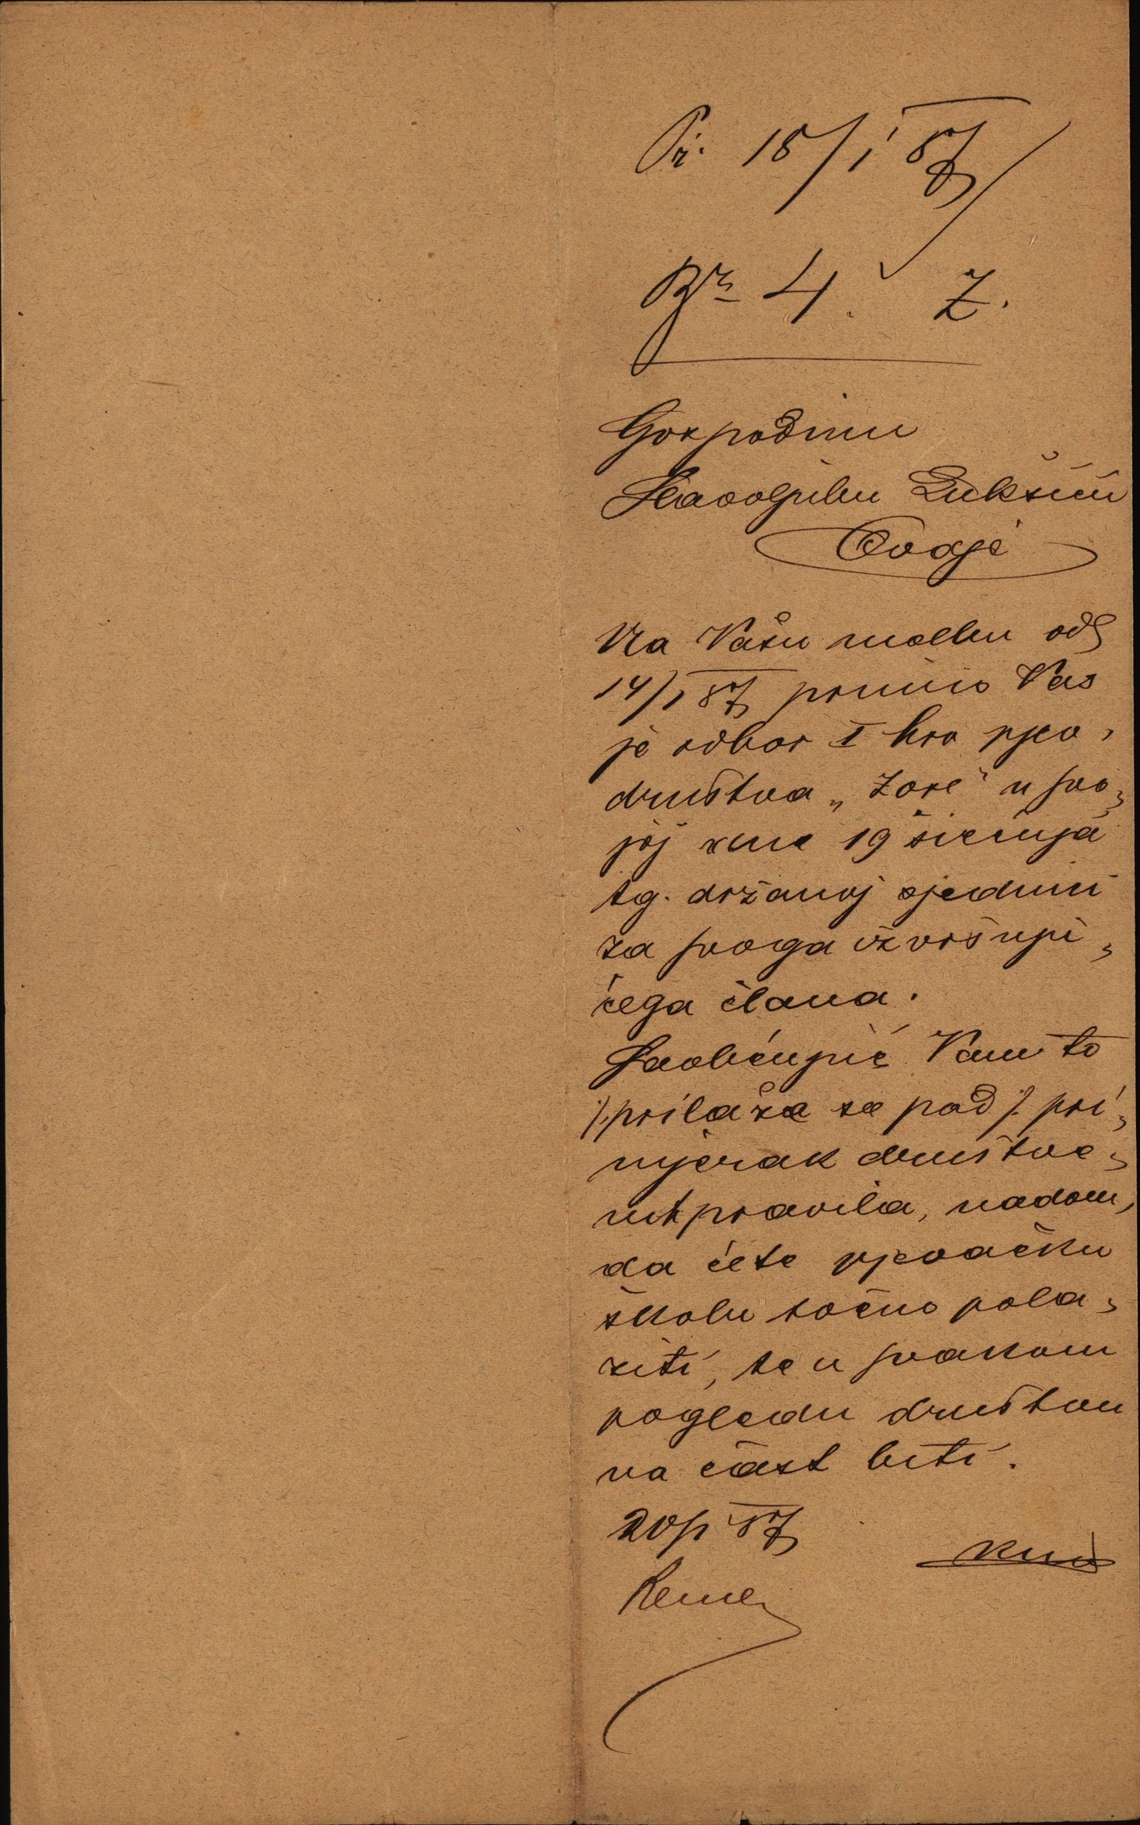 Pr. 18/1 87
Br. 4. Z.
Gospodinu
Slavoljubu Lukšiću
Ovdje
Na Vašu molbu od
14/1 87 primio Vas
je odbor I hrv pjev.
družtva „Zore" u svo„
joj dne 19 siečnja
tg. držanoj sjednici
za svoga izvršuju„
ćega člana.
Saobćujuć Vam to
./. prilaže se pod ./. pri„
mjerak družtve„
nih pravila, nadom,
da ćete pjevačku
školu točno pola„
ziti, te u svakom
pogledu družtvu
na čast biti.
20/1 87